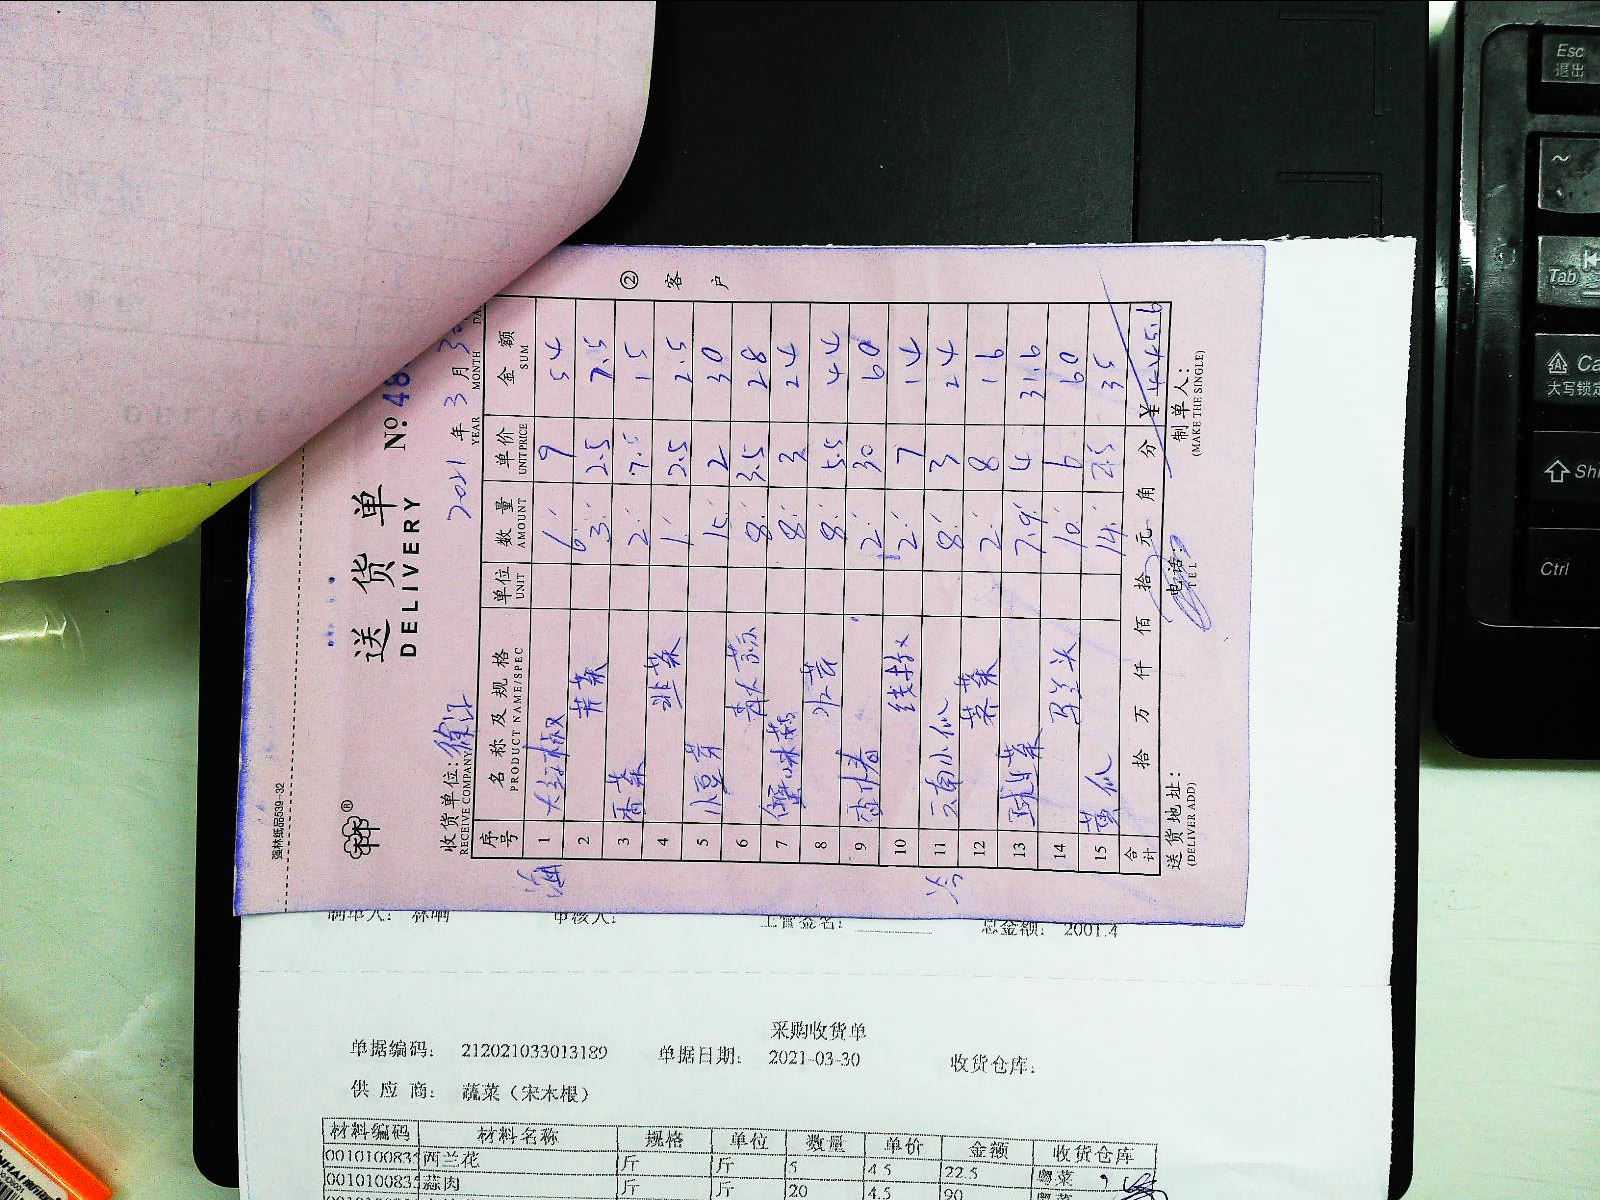 强林纸品539-32
送货单
DELIVERY
№ 48
收货单位: 徐汇
RECEIVE COMPANY
2021 年 3 月 30
YEAR MONTH DA
② 客户
序号 名称及规格 单位 数量 单价 金额
PRODUCT NAME/SPEC UNIT AMOUNT UNIT PRICE SUM
1 大红椒 6 9 54
2 芹菜 3 2.5 7.5
3 香菜 2 7.5 15
4 韭菜 1 2.5 2.5
5 小豆芽 15 2 30
6 8 3.5 28
7 蟹味菇 8 3 24
8 8 5.5 44
9 香椿 2 30 60
10 线椒 2 7 14
11 云南小瓜 8 3 24
12 菜 2 8 16
13 7.9 4 31.6
14 马兰头 10 6 60
15 黄瓜 14 2.5 35
合计 拾 万 仟 佰 拾 元 角 分 ¥ 445.6
送货地址:
(DELIVER ADD)
电话:
TEL
制单人:
(MAKE THE SINGLE)
制单人: 林响 审核人: 主管签名: 总金额: 2001.4
采购收货单
单据编码: 212021033013189 单据日期: 2021-03-30 收货仓库:
供应商: 蔬菜（宋木根）
材料编码 材料名称 规格 单位 数量 单价 金额 收货仓库
001010083 西兰花 斤 斤 5 4.5 22.5 粤菜
001010083 蒜肉 斤 斤 20 4.5 90 粤菜
Esc
退出
~
Tab
Ca
大写锁定
Shi
Ctrl